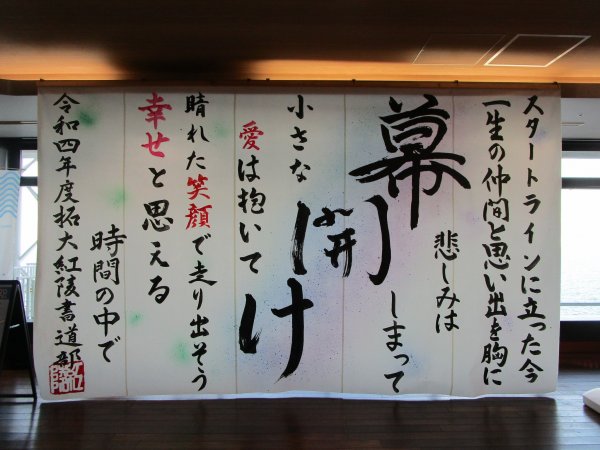 スタートラインに立った今
一生の仲間と思い出を胸に
悲しみは
しまって
幕開け
小さな
愛は抱いて
晴れた笑顔で走り出そう
幸せと思える
時間の中で
令和四年度拓大紅陵書道部
紅陵